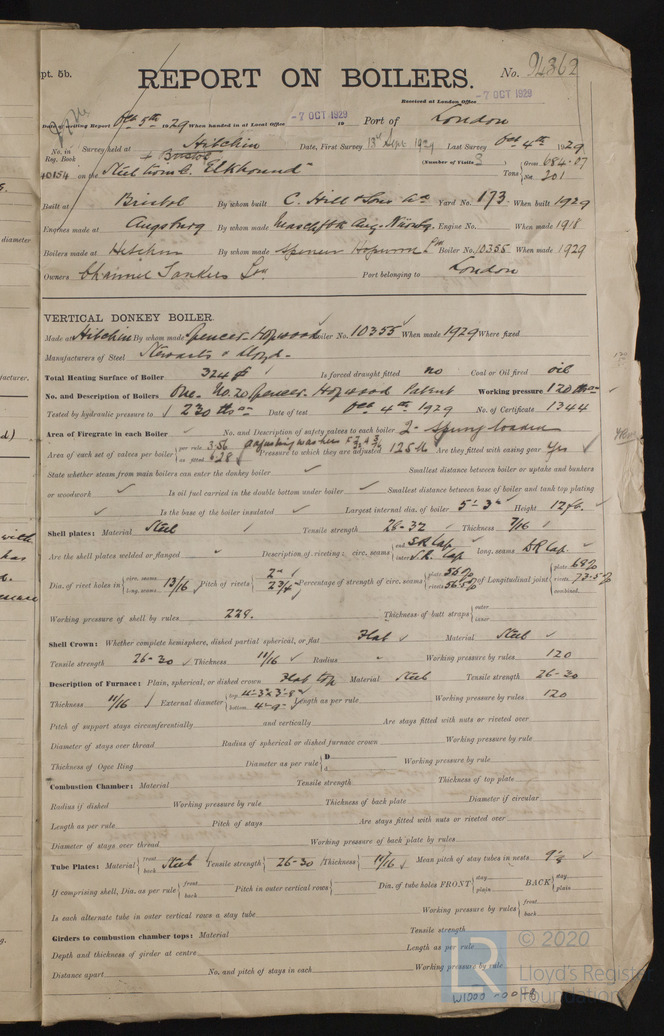 pt. 5b.
REPORT ON BOILERS.
No. 94362
Received at London Office -7 OCT 1929
Date of writing Report Oct 5th 1929 When handed in at Local Office -7 OCT 1929 19 Port of London
No. in Reg. Book Survey held at Hitchin + Bristol Date, First Survey 18th Sept. 1929 Last Survey Oct 4th 1929
(Number of Visits 3
40154 on the Steel "Elkhound" Tons { Gross 684.07 Net 201
Built at Bristol By whom built C. Hill & Sons Yard No. 173 When built 1929
Engines made at Augsburg By whom made Engine No. When made 1918
Boilers made at Hitchin By whom made Spencer Hopwood Boiler No. 10355 When made 1929
Owners Channel Tankers Port belonging to London
VERTICAL DONKEY BOILER.
Made at Hitchin By whom made Spencer Hopwood Boiler No. 10355 When made 1929 Where fixed
Manufacturers of Steel Stewarts & Lloyds
Total Heating Surface of Boiler 324 Is forced draught fitted no Coal or Oil fired oil
No. and Description of Boilers One. No. 20 Spencer Hopwood Patent Working pressure 120
Tested by hydraulic pressure to 230 Date of test Oct 4th 1929 No. of Certificate 1344
Area of Firegrate in each Boiler ✓ No. and Description of safety valves to each boiler 2 - Spring loaded
Area of each set of valves per boiler { per rule 3.56 as fitted 6.28 adjusting washers Pressure to which they are adjusted 125 lb Are they fitted with easing gear Yes
State whether steam from main boilers can enter the donkey boiler ✓ Smallest distance between boiler or uptake and bunkers
or woodwork ✓ Is oil fuel carried in the double bottom under boiler ✓ Smallest distance between base of boiler and tank top plating
✓ Is the base of the boiler insulated ✓ Largest internal dia. of boiler 5'-3" Height 12 ft.
Shell plates: Material Steel Tensile strength 28-32 Thickness 7/16
Are the shell plates welded or flanged Description of riveting: circ. seams { end S.R. Lap inter. S.R. Lap long. seams D.R. Lap.
Dia. of rivet holes in { circ. seams long. seams 13/16 Pitch of rivets { 2" 2 3/4" Percentage of strength of circ. seams { plate 56% rivets 56.5% of Longitudinal joint { plate 68% rivets 73.5% combined
Working pressure of shell by rules 229. Thickness of butt straps { outer inner
Shell Crown: Whether complete hemisphere, dished partial spherical, or flat Flat Material Steel
Tensile strength 26-30 Thickness 11/16 Radius Working pressure by rules 120
Description of Furnace: Plain, spherical, or dished crown Flat top Material Steel Tensile strength 26-30
Thickness 11/16 External diameter { top bottom 4'-9" Length as per rule Working pressure by rules 120
Pitch of support stays circumferentially and vertically Are stays fitted with nuts or riveted over
Diameter of stays over thread Radius of spherical or dished furnace crown Working pressure by rule
Thickness of Ogee Ring Diameter as per rule { D d Working pressure by rule
Combustion Chamber: Material Tensile strength Thickness of top plate
Radius if dished Working pressure by rule Thickness of back plate Diameter if circular
Length as per rule Pitch of stays Are stays fitted with nuts or riveted over
Diameter of stays over thread Working pressure of back plate by rules
Tube Plates: Material { front back Steel Tensile strength { 26-30 Thickness { 11/16 Mean pitch of stay tubes in nests
If comprising shell, Dia. as per rule { front back Pitch in outer vertical rows { Dia. of tube holes FRONT { stay plain BACK { stay plain
Is each alternate tube in outer vertical rows a stay tube Working pressure by rules { front back
Girders to combustion chamber tops: Material Tensile strength
Depth and thickness of girder at centre Length as per rule
Distance apart No. and pitch of stays in each Working pressure by rule
W1000-0048
LR © 2020
Lloyd's Register
Foundation